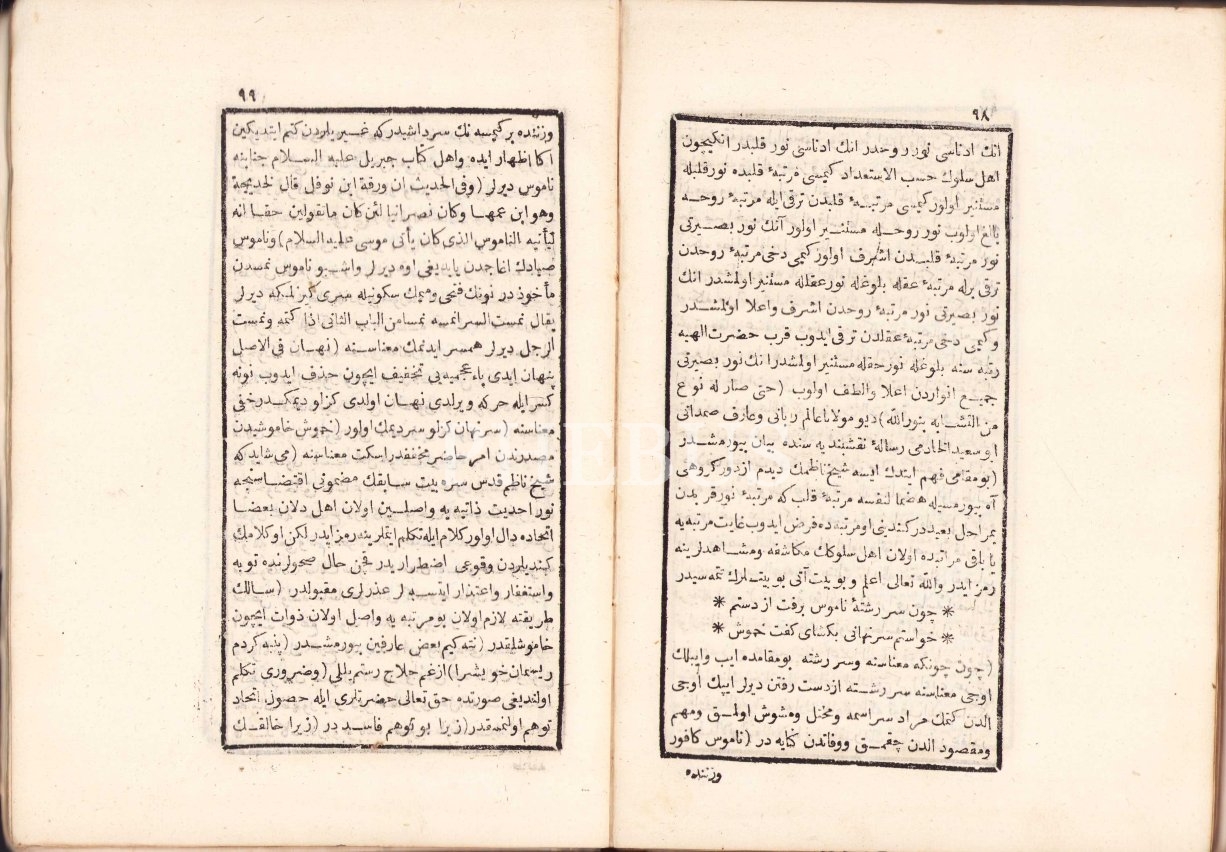 ٩٨
انك ادناسی نور روحدر انك ادناسی نور قلبدر انكیچون
اهل سلوك حسب الاستعداد كیمیسی مرتبۀ قلبده نور قلبله
مستنیر اولور كیمیسی مرتبۀ قلبدن ترقی ایله مرتبۀ روحه
بالغ اولوب نور روحله مستنیر اولور آنك نور بصیرتی
نور مرتبۀ قلبدن اشرف اولور كیمی دخی مرتبۀ روحدن
ترقی برله مرتبۀ عقله بلوغله نور عقلله مستنیر اولمشدر انك
نور بصیرتی نور مرتبۀ روحدن اشرف واعلا اولمشدر
وكیمی دخی مرتبۀ عقلدن ترقی ایدوب قرب حضرت الهیه
رتبه سنه بلوغله نور حقله مستنیر اولمشدر انك نور بصیرتی
جمیع انواردن اعلا والطف اولوب (حتی صار له نوع
من التشابه بنورالله) دیو مولانا عالم ربانی وعارف صمدانی
ابو سعید الخادمی رسالۀ نقشندیه سنده بیان بیورمشدر
(بومقامی فهم ایتدك ایسه شیخ ناظمك دیدم از دور كروهی
آه بیورمسیله هضما لنفسه مرتبۀ قلب كه مرتبۀ نور قربدن
بمراحل بعیددر كندینی او مرتبه ده فرض ایدوب غایت مرتبه یه
یا باقی مراتبده اولان اهل سلوكك مكاشفه ومشاهدلرینه
رمز ایدر والله تعالی اعلم وبو بیت آتی بو بیتلرك تتمه سیدر
* چون سر رشتۀ ناموس برفت از دستم *
* خواستم سر نهانی بكشای كفت خموش *
(چون چونكه معناسنه وسر رشته بومقامده ایب وایپلك
اوجی معناسنه سر رشته از دست رفتن دیرلر ایپك اوجی
الدن كتمك مراد سراسمه ومختل ومشوش اولمق ومهم
ومقصود الدن چقمق ووفاتدن كنایه در (ناموس كافور
وزننده
٩٩
وزننده بر كیمسه نك سرداشیدر كه غیریلردن كتم ایتدیكین
اكا اظهار ایده واهل كتاب جبریل علیه السلام جنابنه
ناموس دیرلر (وفی الحدیث ان ورقة ابن نوفل قال لخدیجة
وهو ابن عمها وكان نصرانیا لئن كان ماتقولین حقا انه
لیأتیه الناموس الذی كان یأتی موسی علیه السلام) وناموس
صیادك اغاجدن یابدیغی اوه دیرلر واشبو ناموس نمسدن
مأخوذ در نونك فتحی ومیمك سكونیله سری كیزلمكه دیرلر
یقال نمست السر انمسه نمسا من الباب الثانی اذا كتمه ونمست
الرجل دیرلر همسر ایدنمك معناسنه (نهان فی الاصل
پنهان ایدی باء عجمیه یی تخفیف ایچون حذف ایدوب نونه
كسر ایله حركه ویرلدی نهان اولدی كزلو دیمكدر خفی
معناسنه (سر نهان كزلو سر دیمك اولور (خموش خاموشیدن
مصدرندن امر حاضر مخففدر اسكت معناسنه (می شاید كه
شیخ ناظم قدس سره بیت سابقك مضمونی اقتضاسنجه
نور احدیت ذاتیه یه واصلین اولان اهل دلان بعضا
اتحاده دال اولور كلام ایله تكلم ایتملرینه رمز ایدر لكن او كلامك
كندیلردن وقوعی اضطراریدر قچن حال صحولرنده توبه
واستغفار واعتذار ایتسه لر عذرلری مقبولدر (سالك
طریقته لازم اولان بو مرتبه یه واصل اولان ذوات ایچون
خاموشلقدر (نته كیم بعض عارفین بیورمشدر (پنبه كردم
ریسمان خویشرا) از غم حلاج رستم بللی (وضروری تكلم
اولندیغی صورتده حق تعالی حضرتلری ایله حصول اتحاد
توهم اولنمقدر (زیرا بو توهم فاسد در (زیرا خالقك